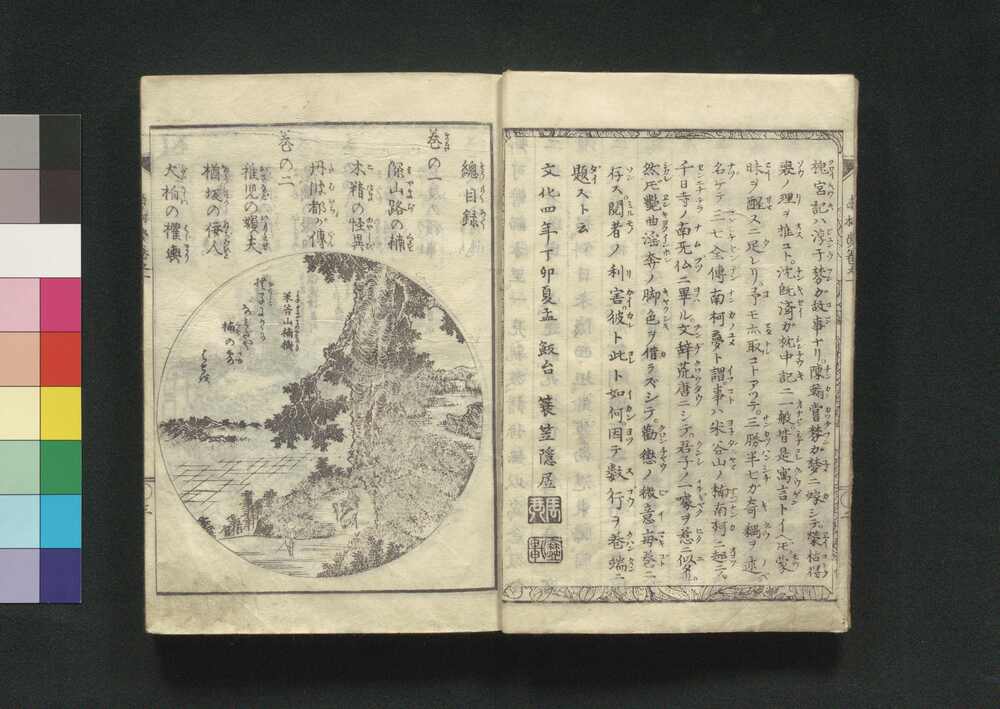 槐宮記ハ淳于棼ガ故事ナリ。陳翁嘗棼ガ夢ニ寐シテ榮枯得
喪ノ理ヲ推コト。沈既済ガ枕中記ニ一般皆是寓言トイヘドモ蒙
昧ヲ醒スニ足レリ。予モ亦取コトアツテ。三勝半七ガ奇耦ヲ述
名ケテ三七全傳南柯夢ト謂事ハ米谷山ノ楠南柯ニ起テ。
千日寺ノ南無仏ニ畢ル文辞荒唐ニシテ。君子ノ一嚎ヲ惹ニ似
然ドモ艶曲淫奔ノ脚色ヲ借ラズシテ勸懲ノ微意毎巻ニ
存ス。閲者ノ利害彼ト此ト如何。因テ数行ヲ巻端ニ
題スト云
文化四年丁卯夏孟 飯台 簑笠隠居
總目録
巻の一
深山路の楠
木精の怪異
丹波都が傳
巻の二
稚児の媚夫
楢坂の侫人
大栢の櫂輿
米谷山楠機
楠の